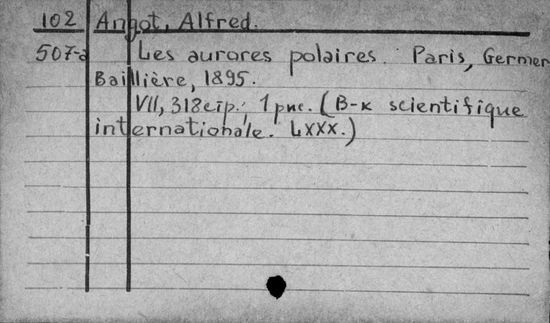 102 Angot, Alfred.
507-a Les aurores polaires. Paris, Germer
Baillière, 1895.
VII, 318 стр., 1 рис. (B-к scientifique
internationale. LXXX.)